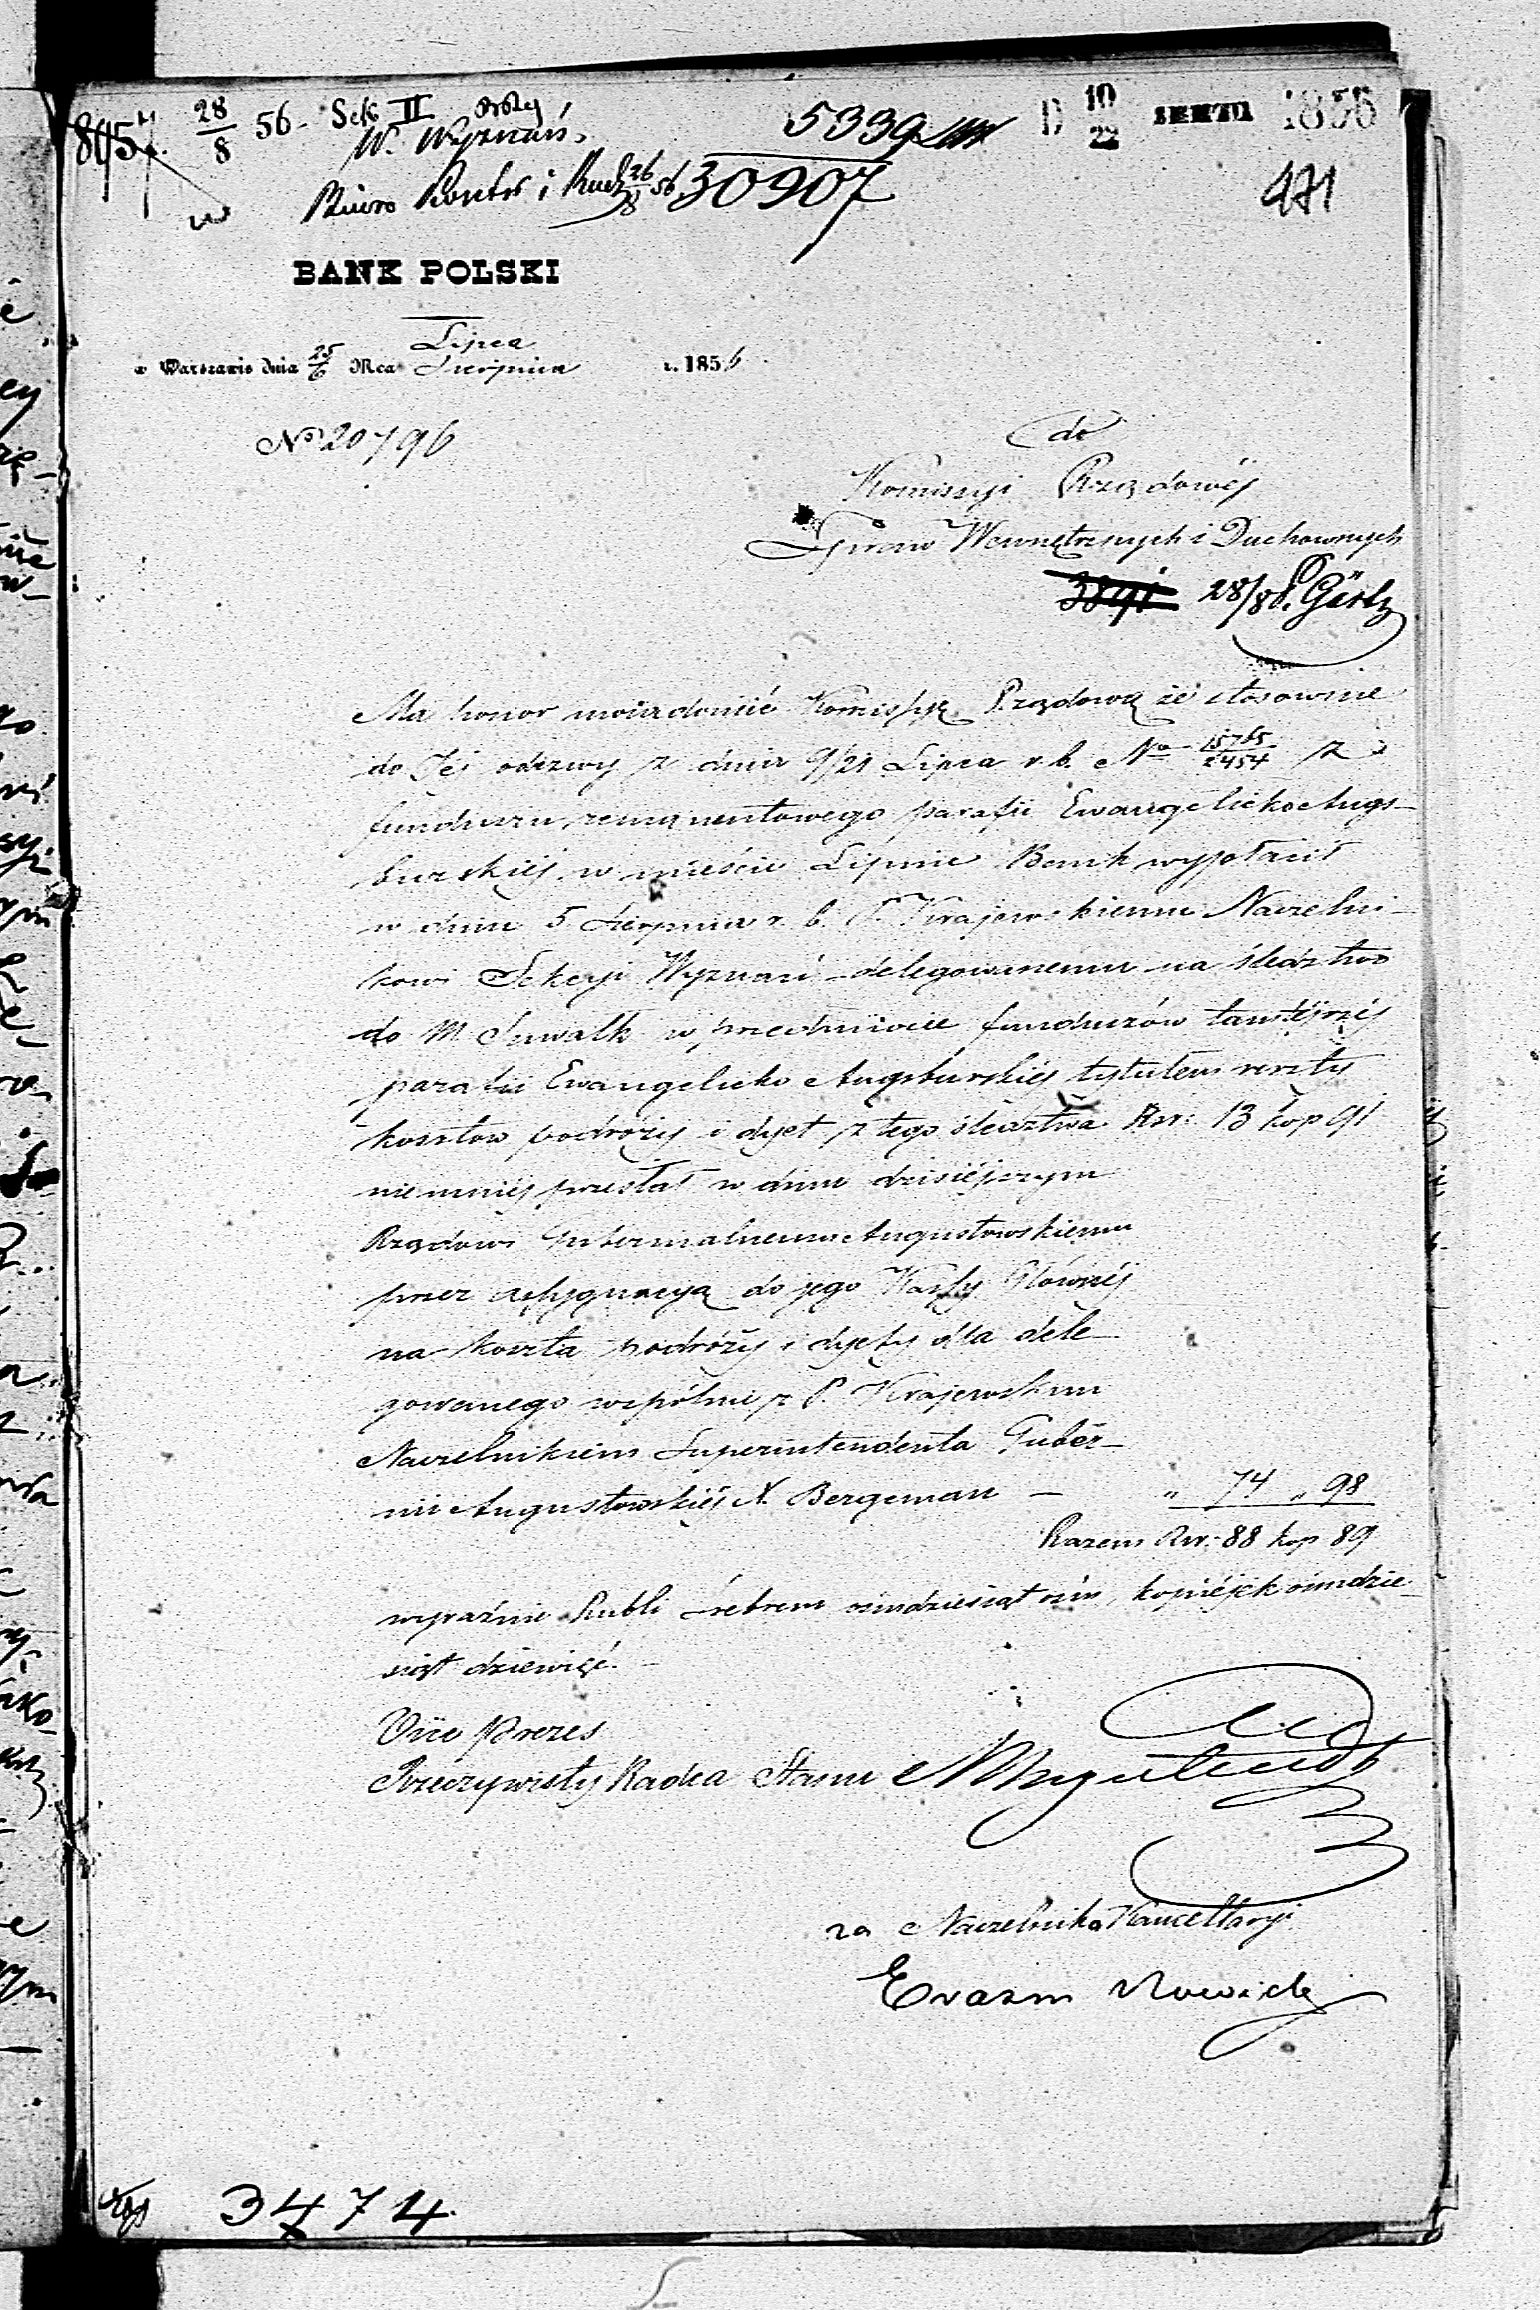 28/8 56. Sek II
W. Wyznań.
5339
1856
Biuro Kontr i Rach 26/8 56 30907
471
BANK POLSKI
w Warszawie dnia 25/6 Mca Lipca/Sierpnia r. 1856
No 20796
do
Komissyi Rządowéj
Spraw Wewnętrznych i Duchownych
28/8
Ma honor uwiadomić Komissyę Rządową że stosownie
do Jéj odezwy z dnia 9/21 Lipca r. b. No 15765/2454 z
funduszu remanentowego parafii Ewangelicko Augs-
burskiéj w mieście Lipnie Bank wypłacił
w dniu 5 Sierpnia r. b. P. Krajewskiemu Naczelni-
kowi Sekcyi Wyznań delegowanemu na śledztwo
do M. Suwałk w przedmiocie funduszów tamtéjszéj
parafii Ewangelicko Augsburskiéj tytułem reszty
kosztów podróży i dyet z tego śledztwa Rsr: 13 kop 91
niemniéj przesłał w dniu dzisiéjszym
Rządowi Gubernialnemu Augustowskiemu
przez assygnacyą do jego Kassy Głównéj
na koszta podróży i dyety dla dele-
gowanego wspólnie z P. Krajewskim
Naczelnikiem Superintendenta Guber-
nii Augustowskiéj X. Bergeman — " 74 " 98
Razem Rsr. 88 kop 89
wyraźnie Rubli srebrem ośmdziesiąt ośm, kopiéjek ośmdzie-
siąt dziewięć.
Vice Prezes
Rzeczywisty Radca Stanu
za Naczelnika Kancellaryi
Erazm Nowicki
3474